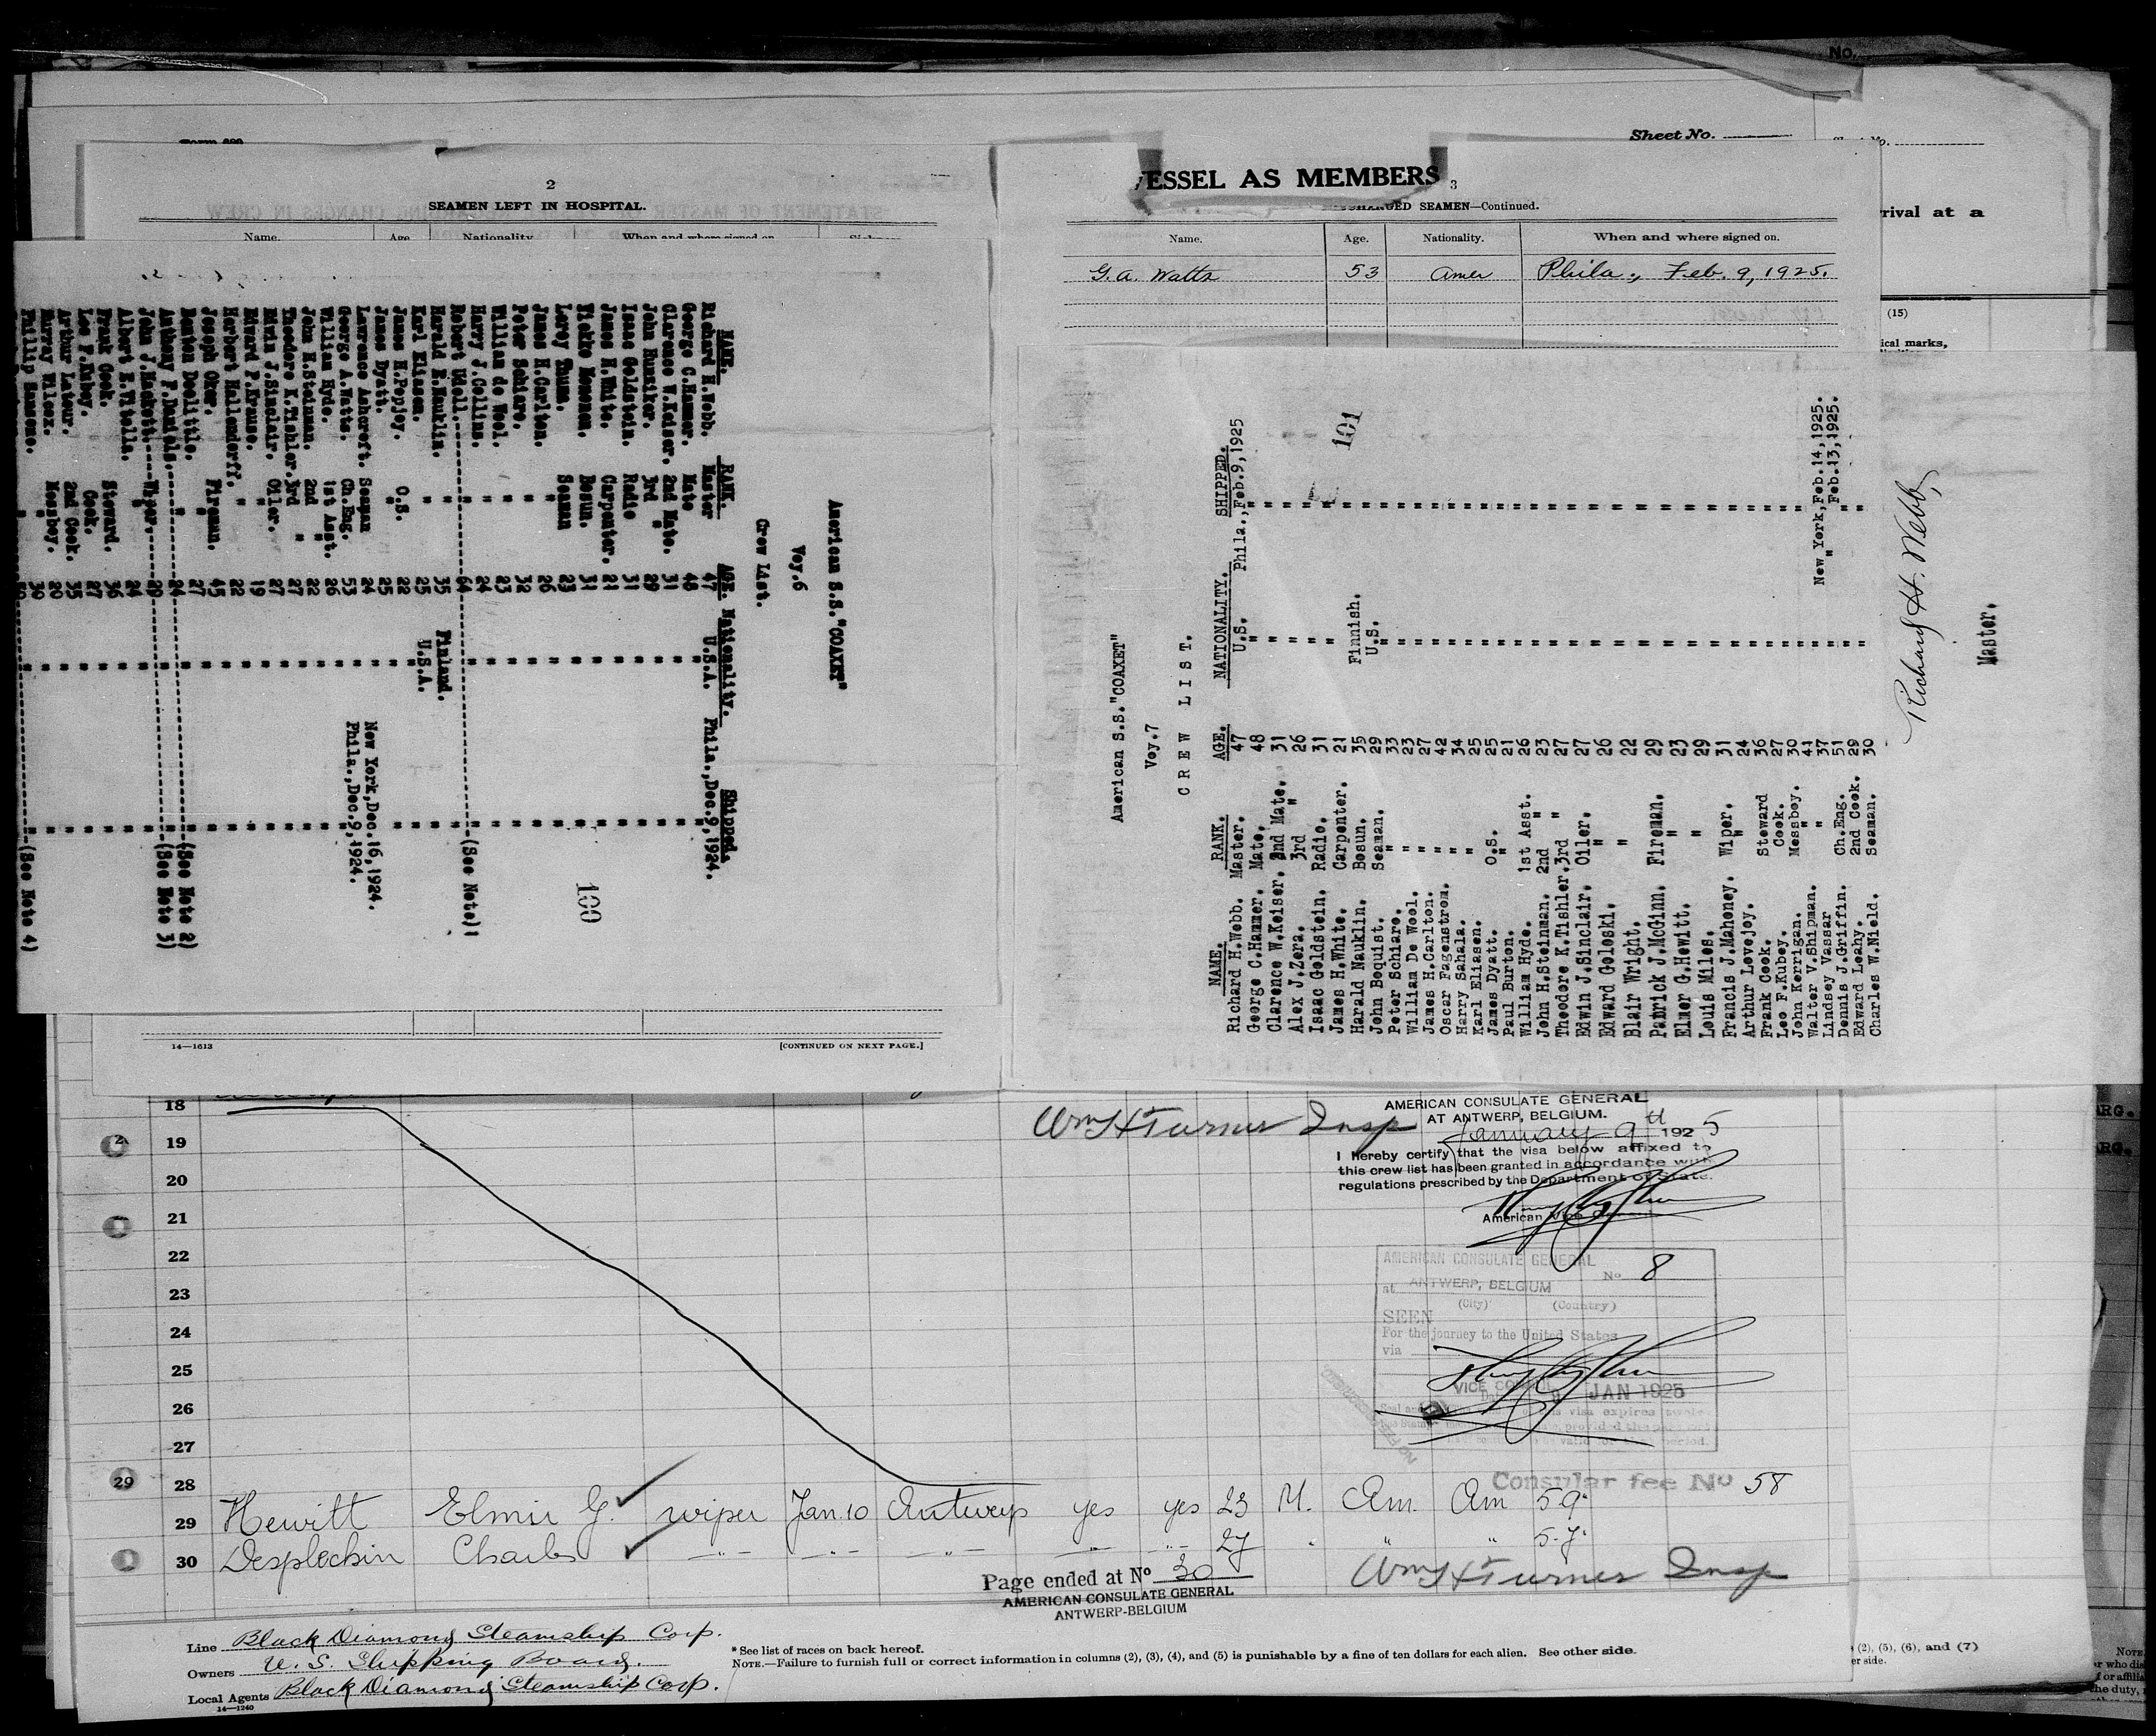 No.
Sheet No.
2
SEAMEN LEFT IN HOSPITAL.
Name. Age Nationality When and where signed on
American S.S."COAXET"
Voy.6
Crew List.
NAME. RANK. AGE. Nationality. Shipped.
Richard H.Webb. Master 47 U.S.A. Phila.,Dec.9,1924.
George C.Hammer. Mate 48 " "
Clarence W.Keiser. 2nd Mate. 31 " "
John Hunziker. 3rd " 29 " "
Isaac Goldstein. Radio 31 " "
James H.White. Carpenter. 21 " "
Bosun. 31 " "
Leroy Thumm. Seaman 23 " "
James H.Carlton. " 26 " "
Peter Schiare. " 32 " "
William de Wool. " 23 " "
Harry J.Collins. " 24 " "
Robert Udell.------"------64------"------"--(See Note)1
Harald E.Nauklin. " 35 Finland. "
Karl Eliasen. " 25 U.S.A. "
James H.Popjoy. O.S. 22 " "
James Dyatt. " 25 " "
Lawrence Ashcroft. Seaman 24 " New York,Dec.16,1924.
George A.Watts. Ch.Eng. 53 " Phila.,Dec.9,1924.
William Hyde. 1st Asst. 26 " "
John H.Steinman. 2nd " 22 " "
Theodore K.Tishler.3rd " 27 " "
Edwin J.Sinclair. Oiler. 27 " "
Edward P.Krause. " 19 " "
Herbert Hallendorff. " 22 " "
Joseph Oker. Fireman. 45 " "
Benton Doolittle. " 27 " "
Anthony F.Daniels.------"------24------"------"--(See Note 2)
John J.Hackett.------Wiper.------29------"------"--(See Note 3)
Albert E.Vitella. " 24 " "
Frank Cook. Steward. 36 " "
Leo F.Kubey. Cook. 27 " "
Arthur Latour. 2nd Cook. 35 " "
Murray Wilcox. Messboy. 20 " "
Phillip Sansone. " 30 " "
(See Note 4)
100
14—1613
[CONTINUED ON NEXT PAGE.]
VESSEL AS MEMBERS
3
DISCHANGED SEAMEN—Continued.
Name. Age. Nationality. When and where signed on.
G. A. Watts 53 Amer Phila., Feb. 9, 1925.
rival at a
(15)
ical marks,
American S.S."COAXET"
Voy.7
C R E W L I S T.
NAME. RANK. AGE. NATIONALITY. SHIPPED.
Richard H.Webb. Master. 47 U.S. Phila.,Feb.9,1925
George C.Hammer. Mate. 48 " "
Clarence W.Keiser. 2nd Mate. 31 " "
Alex J.Zera. 3rd " 26 " "
Isaac Goldstein. Radio. 31 " "
James H.White. Carpenter. 21 " "
Harald Nauklin. Bosun. 35 Finnish. "
John Boquist. Seaman. 29 U.S. "
Peter Schiare. " 33 " "
William De Wool. " 23 " "
James H.Carlton. " 27 " "
Oscar Fagenstrom. " 42 " "
Harry Sahala. " 34 " "
Karl Eliasen. " 25 " "
James Dyatt. O.S. 25 " "
Paul Burton. " 21 " "
William Hyde. 1st Asst. 26 " "
John H.Steinman. 2nd " 23 " "
Theodore K.Tishler.3rd " 27 " "
Edwin J.Sinclair. Oiler. 27 " "
Edward Goloski. " 26 " "
Blair Wright. " 22 " "
Patrick J.McGinn. Fireman. 29 " "
Elmer G.Hewitt. " 23 " "
Louis Miles. " 29 " "
Francis J.Mahoney. Wiper. 31 " "
Arthur Lovejoy. " 24 " "
Frank Cook. Steward 36 " "
Leo F.Kubey. Cook. 27 " "
John Kerrigan. Messboy. 30 " "
Walter V.Shipman. " 41 " New York,Feb.14,1925.
Lindsey Vassar " 37 " Feb.13,1925.
Dennis J.Griffin. Ch.Eng. 51 " "
Edward Leahy. 2nd Cook. 29 " "
Charles W.Nield. Seaman. 30 " "
101
Richard H. Webb,
Master.
18
19
20
21
22
23
24
25
26
27
28
Wm H Turner Insp
AMERICAN CONSULATE GENERAL
AT ANTWERP, BELGIUM.
January 9th 1925
I hereby certify that the visa below affixed to
this crew list has been granted in accordance with
regulations prescribed by the Department of State.
American Vice
AMERICAN CONSULATE GENERAL
No 8
at ANTWERP, BELGIUM
(City) (Country)
SEEN
For the journey to the United States
via
VICE CONSUL
JAN 1925
Consular fee No 58
29 Hewitt Elmer G. wiper Jan. 10 Antwerp yes yes 23 M. Am. Am 5 9"
30 Desplechin Charles " " " " " 27 " " " 5-7"
Page ended at No 30
AMERICAN CONSULATE GENERAL
ANTWERP-BELGIUM
Wm H Turner Insp
Line Black Diamond Steamship Corp.
Owners U. S. Shipping Board.
Local Agents Black Diamond Steamship Corp.
14—1240
*See list of races on back hereof.
NOTE.—Failure to furnish full or correct information in columns (2), (3), (4), and (5) is punishable by a fine of ten dollars for each alien. See other side.
(2), (5), (6), and (7)
er side.